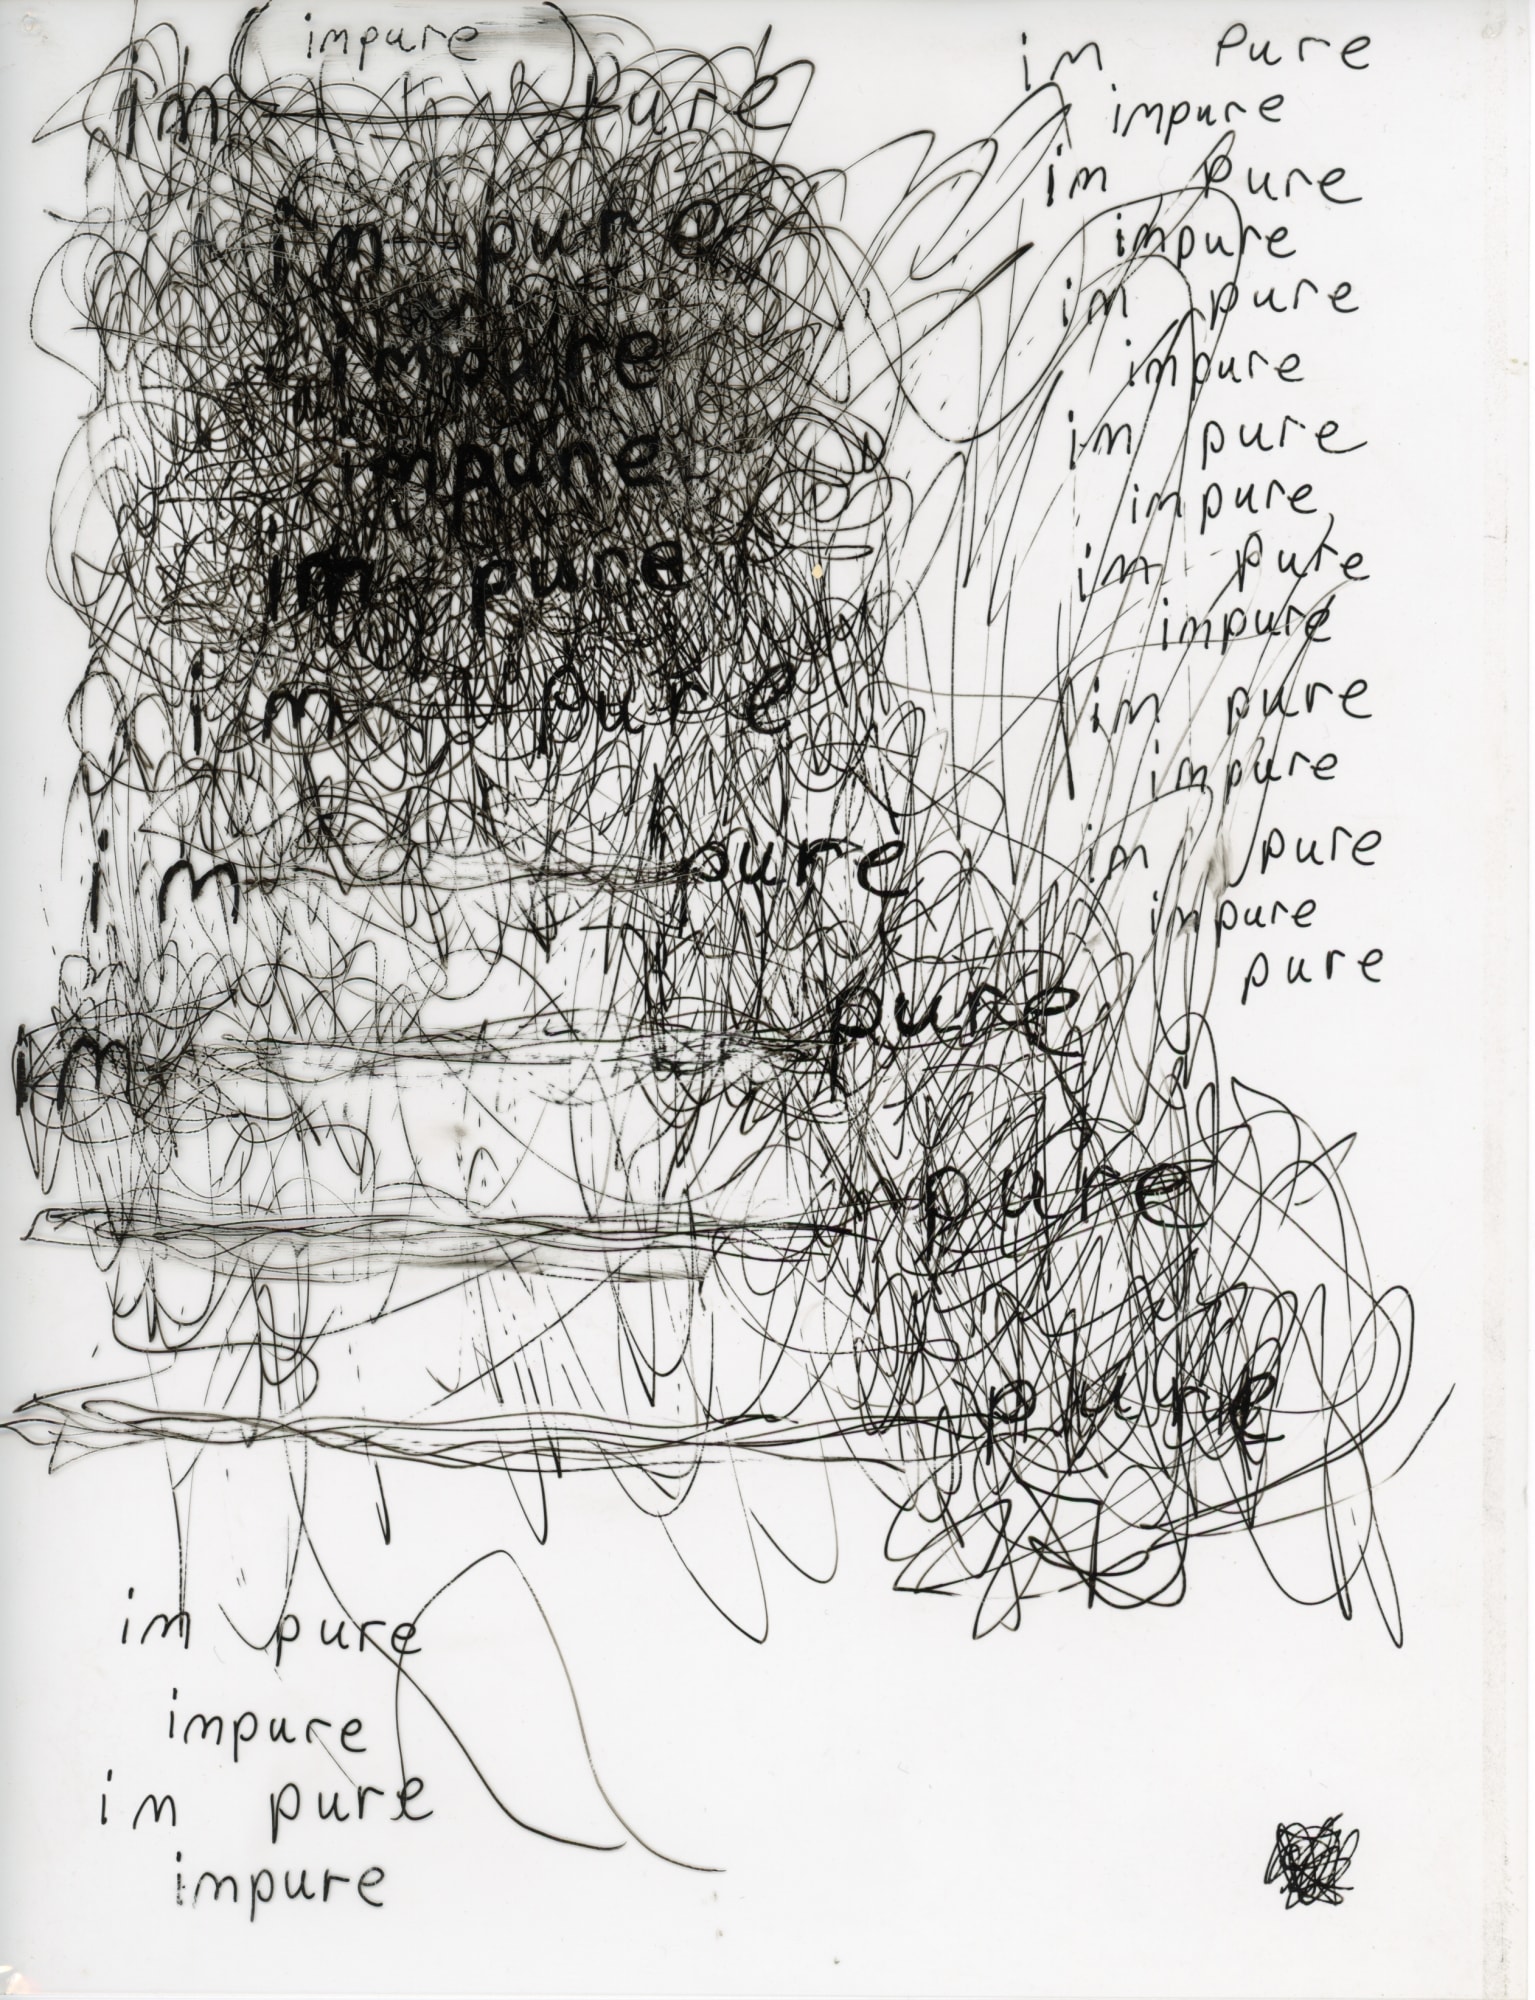 (impure)
im pure
im pure
impure
impure
im pure
im pure
im pure
im pure
pure
pure
im pure
impure
im pure
impure
im pure
impure
im pure
impure
im pure
impure
im pure
impure
im pure
impure
im pure
impure
pure
im pure
impure
im pure
impure